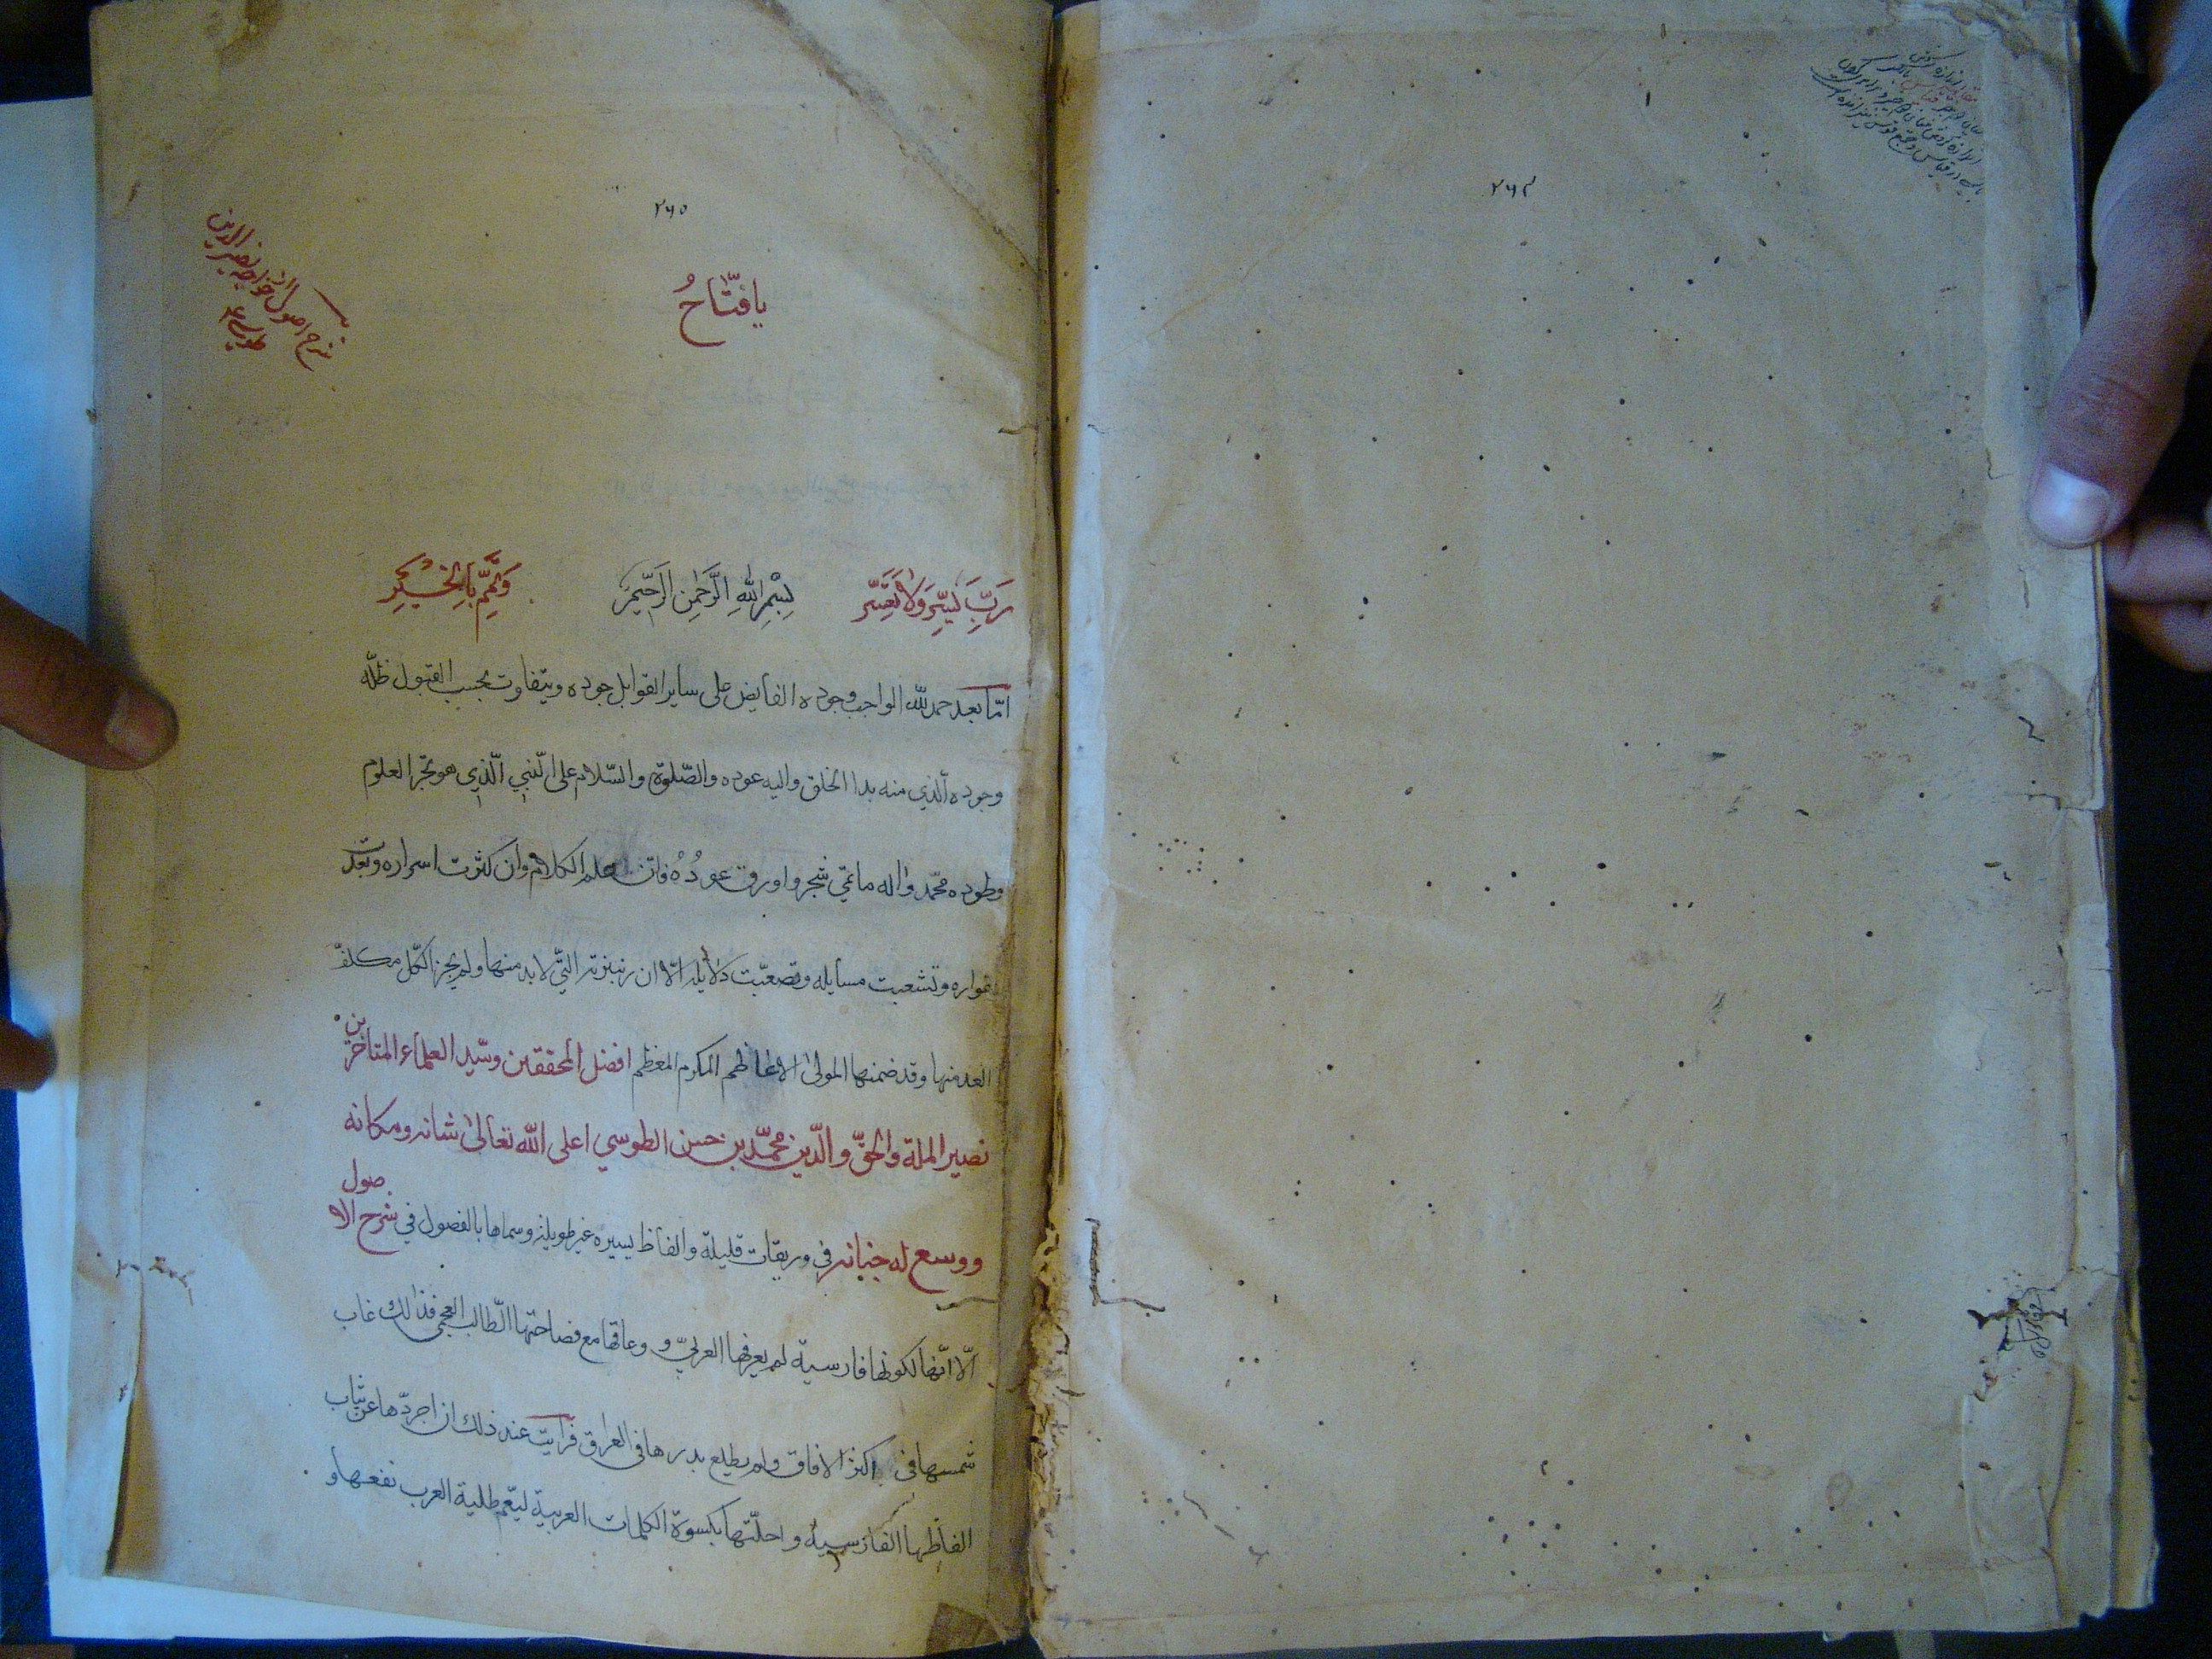 ۲۶۴
۲۶۵
شرح اصول از خواجه نصیر الدین
طوسی
یا فتّاحُ
رَبِّ یَسِّر وَلَا تُعَسِّر بِسْمِ اللهِ الرَّحمٰنِ الرَّحِیمِ وَتَمِّم بِالخَیْرِ
امّا بعد حمد للّه الواجب وجوده الفایض علی سایر القوابل جوده ویتفاوت بحسب القبول ظلّه
وجوده الّذی منه بدا الخلق والیه عوده والصّلوة والسّلام علی النّبی الّذی هو بحر العلوم
وطوده محمّد واله ما نمی شجر واورق عودُهُ فانّ علم الکلام وان کثرت اسراره وبَعُد
غواره وتشعبت مسایله وتصعّبت دلایله الّا ان التی لابد منها ولم یجز لکل مکلفّ
العد منها وقد ضمنها المولیٰ الاعاظم المکرم المعظم افضل المحققین وسیّد العلماء المتاخرین
نصیر الملة والحقّ والدّین محمّد بن حسن الطوسی اعلی اللّه تعالیٰ شانه ومکانه
ووسع له جنانه فی وریقات قلیلة والفاظ یسیره غیر طویلة وسماها بالفصول فی شرح الاصول
الّا انّها لکونها فارسیة لم یعرفها العربیّ و وعاقها مع فصاحتها الّطالب العجمی فذالك غاب
شمسها فی اکثر الافاق ولم یطلع بدرها فی العراق فرایت عند ذلك ان اجرّدها عن ثیاب
الفاظها الفارسیة واحلّتها بکسوة الکلمات العربیة لیتمّ طلبة العرب نفعها و